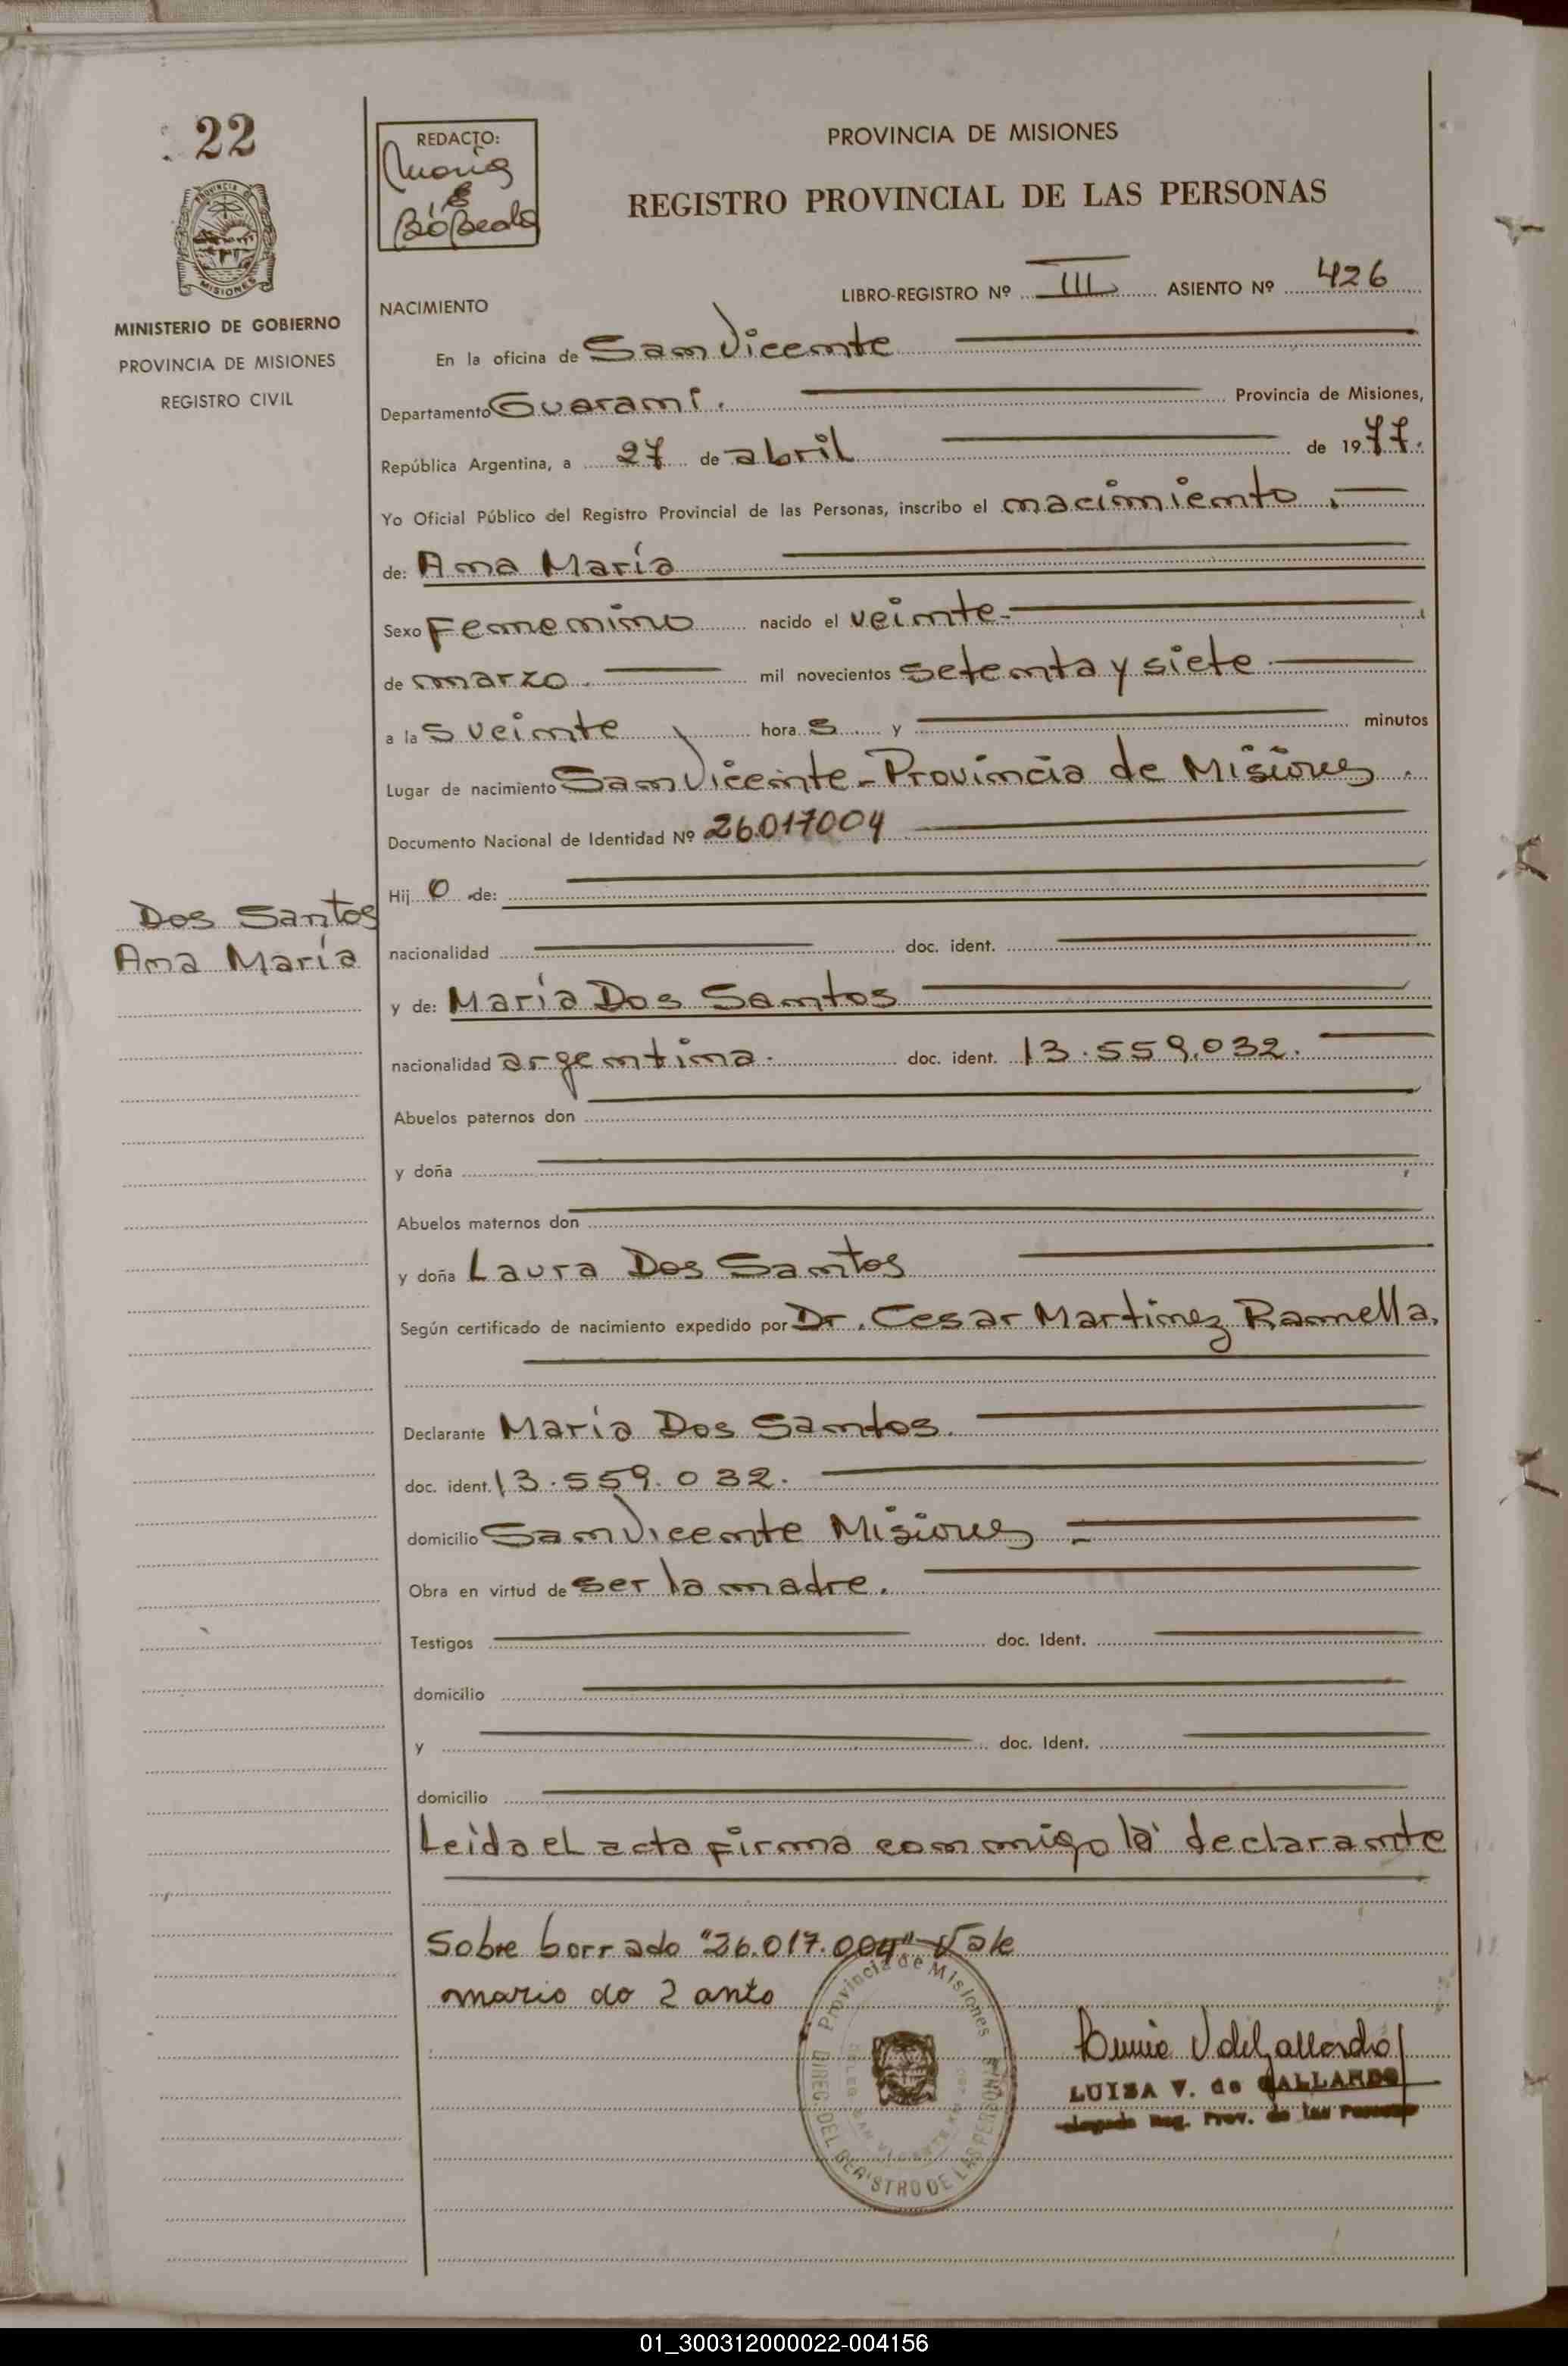 22
PROVINCIA DE
MISIONES
MINISTERIO DE GOBIERNO
PROVINCIA DE MISIONES
REGISTRO CIVIL
Dos Santos
Ana María
REDACTO:
PROVINCIA DE MISIONES
REGISTRO PROVINCIAL DE LAS PERSONAS
LIBRO-REGISTRO Nº III ASIENTO Nº 426
NACIMIENTO
En la oficina de San Vicente
Departamento Guaraní. Provincia de Misiones,
República Argentina, a 27 de abril de 1977.
Yo Oficial Público del Registro Provincial de las Personas, inscribo el nacimiento.
de: Ana María
Sexo Femenino nacido el veinte
de marzo. mil novecientos setenta y siete
a las veinte horas y minutos
Lugar de nacimiento San Vicente - Provincia de Misiones.
Documento Nacional de Identidad Nº 26.017004
Hijo de:
nacionalidad doc. ident.
y de: María Dos Santos
nacionalidad argentina. doc. ident. 13.559.032.
Abuelos paternos don
y doña
Abuelos maternos don
y doña Laura Dos Santos
Según certificado de nacimiento expedido por Dr. Cesar Martinez Ramella.
Declarante María Dos Santos.
doc. ident. 13.559.032.
domicilio San Vicente Misiones
Obra en virtud de ser la madre.
Testigos doc. Ident.
domicilio
y doc. Ident.
domicilio
Leida el acta firma conmigo la declarante
Sobre borrado "26.017.004" Vale
mario do 2 anto
Provincia de Misiones
DIREC. DEL REGISTRO DE LAS PERSONAS
LUISA V. de GALLARDO
Reg. Prov. de las Personas
01_300312000022-004156